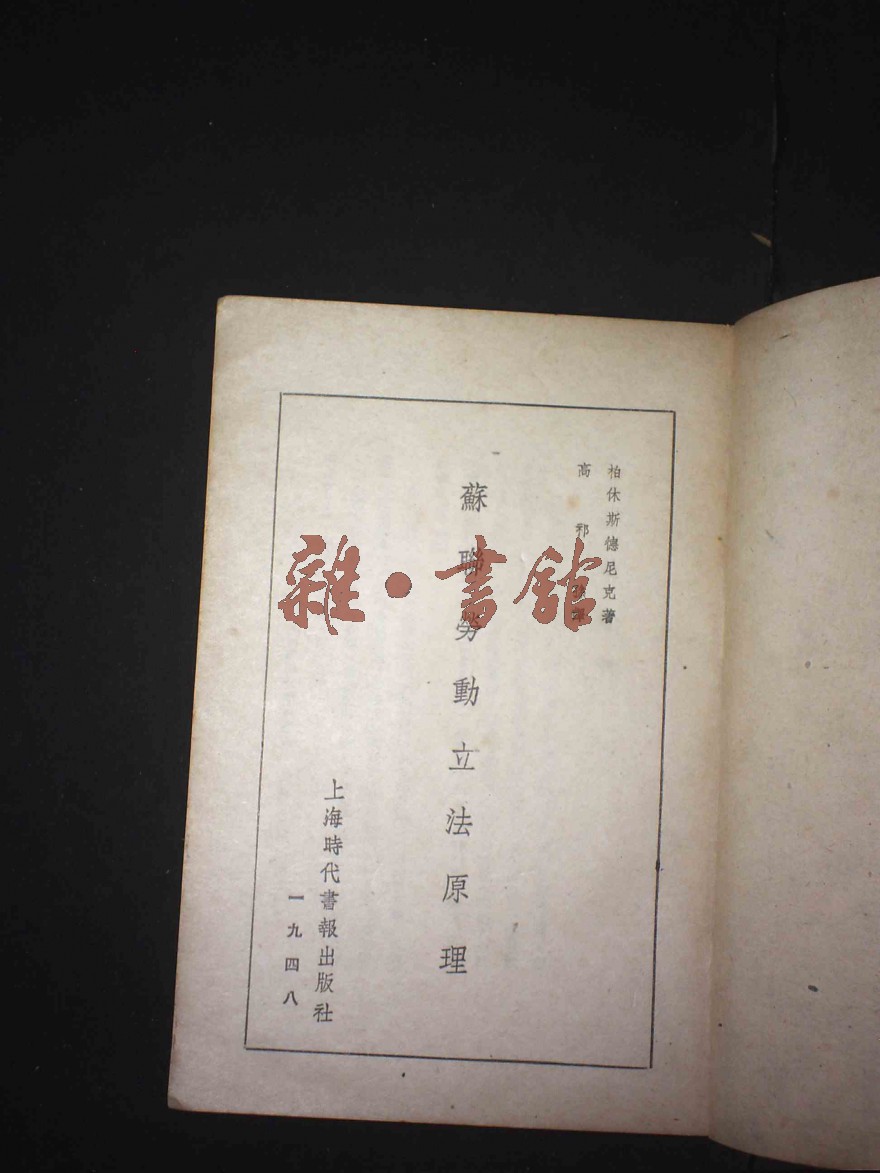 柏休斯德尼克著
高祁譯
蘇聯勞動立法原理
上海時代書報出版社
一九四八
雜·書館